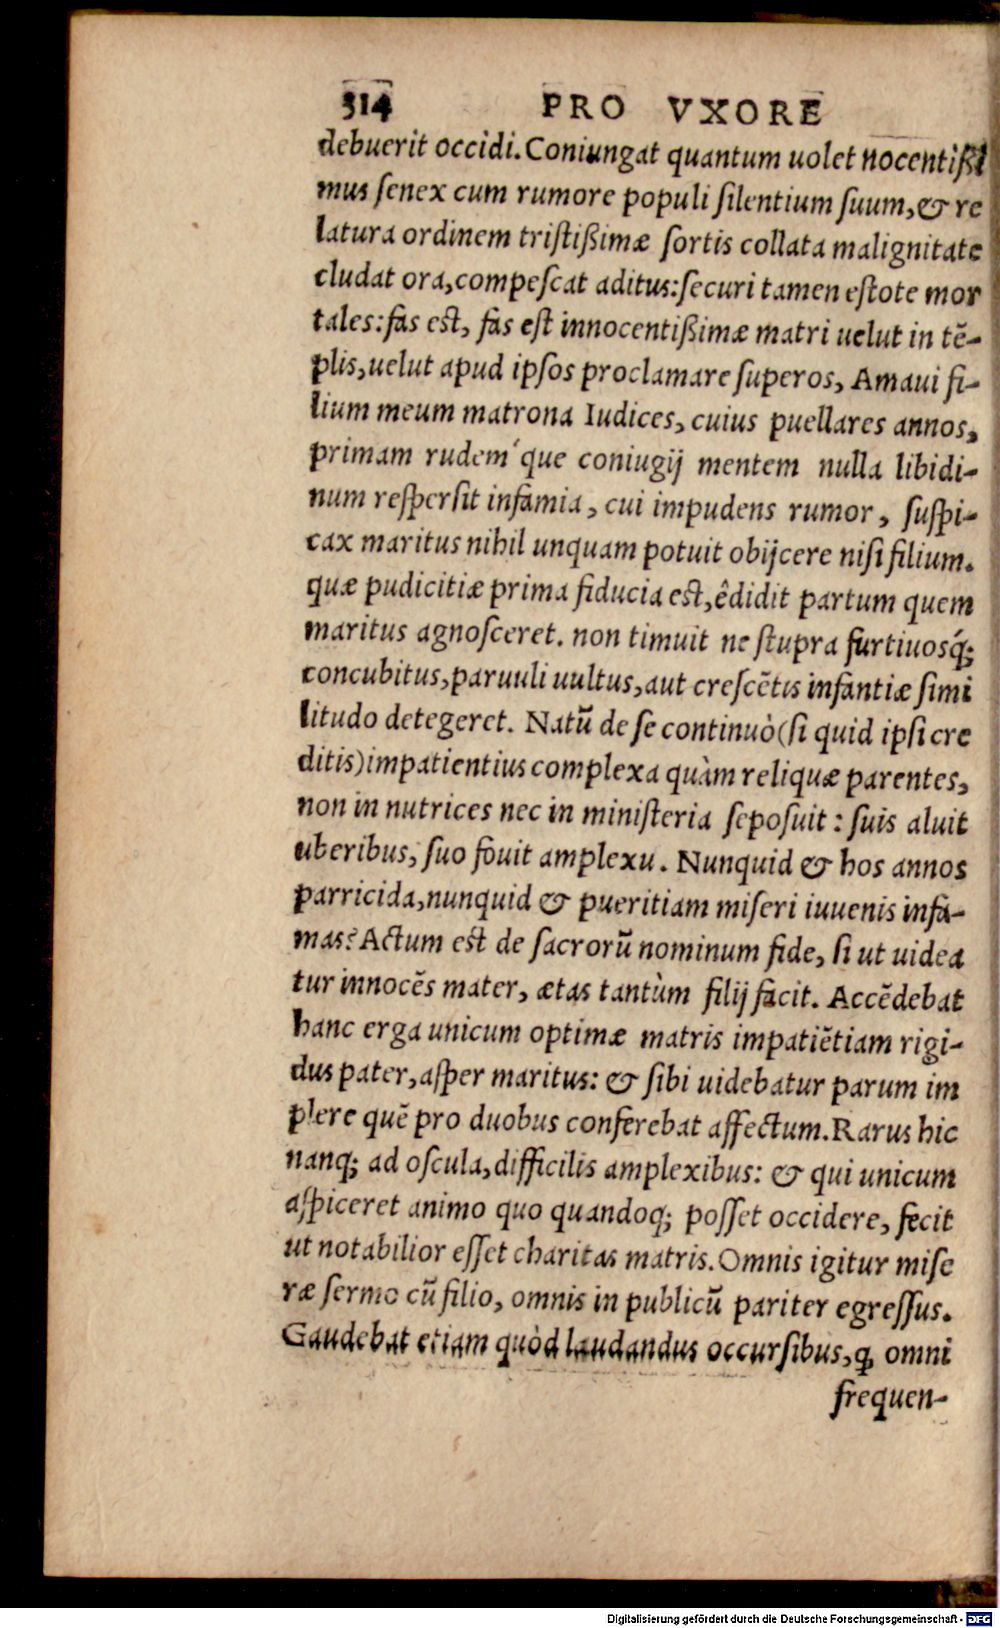 314 PRO VXORE
debuerit occidi. Coniungat quantum uolet nocentißi
mus senex cum rumore populi silentium suum, & re
latura ordinem tristißimæ sortis collata malignitate
cludat ora, compescat aditus: securi tamen estote mor
tales: fas est, fas est innocentißimæ matri uelut in tē-
plis, uelut apud ipsos proclamare superos, Amaui fi-
lium meum matrona Iudices, cuius puellares annos,
primam rudem´que coniugij mentem nulla libidi-
num respersit infamia, cui impudens rumor, suspi-
cax maritus nihil unquam potuit obijcere nisi filium.
quæ pudicitiæ prima fiducia est, êdidit partum quem
maritus agnosceret. non timuit ne stupra furtiuosq́;
concubitus, paruuli uultus, aut crescētis infantiæ simi
litudo detegeret. Natū de se continuò (si quid ipsi cre
ditis) impatientius complexa quàm reliquæ parentes,
non in nutrices nec in ministeria seposuit: suis aluit
uberibus, suo fouit amplexu. Nunquid & hos annos
parricida, nunquid & pueritiam miseri iuuenis infa-
mas? Actum est de sacrorū nominum fide, si ut uidea
tur innocēs mater, ætas tantùm filij facit. Accēdebat
hanc erga unicum optimæ matris impatiētiam rigi-
dus pater, asper maritus: & sibi uidebatur parum im
plere quē pro duobus conferebat affectum. Rarus hic
nanq; ad oscula, difficilis amplexibus: & qui unicum
aspiceret animo quo quandoq; posset occidere, fecit
ut notabilior esset charitas matris. Omnis igitur mise
ræ sermo cū filio, omnis in publicū pariter egressus.
Gaudebat etiam quòd laudandus occursibus, ꝙ omni
frequen-
Digitalisierung gefördert durch die Deutsche Forschungsgemeinschaft - DFG